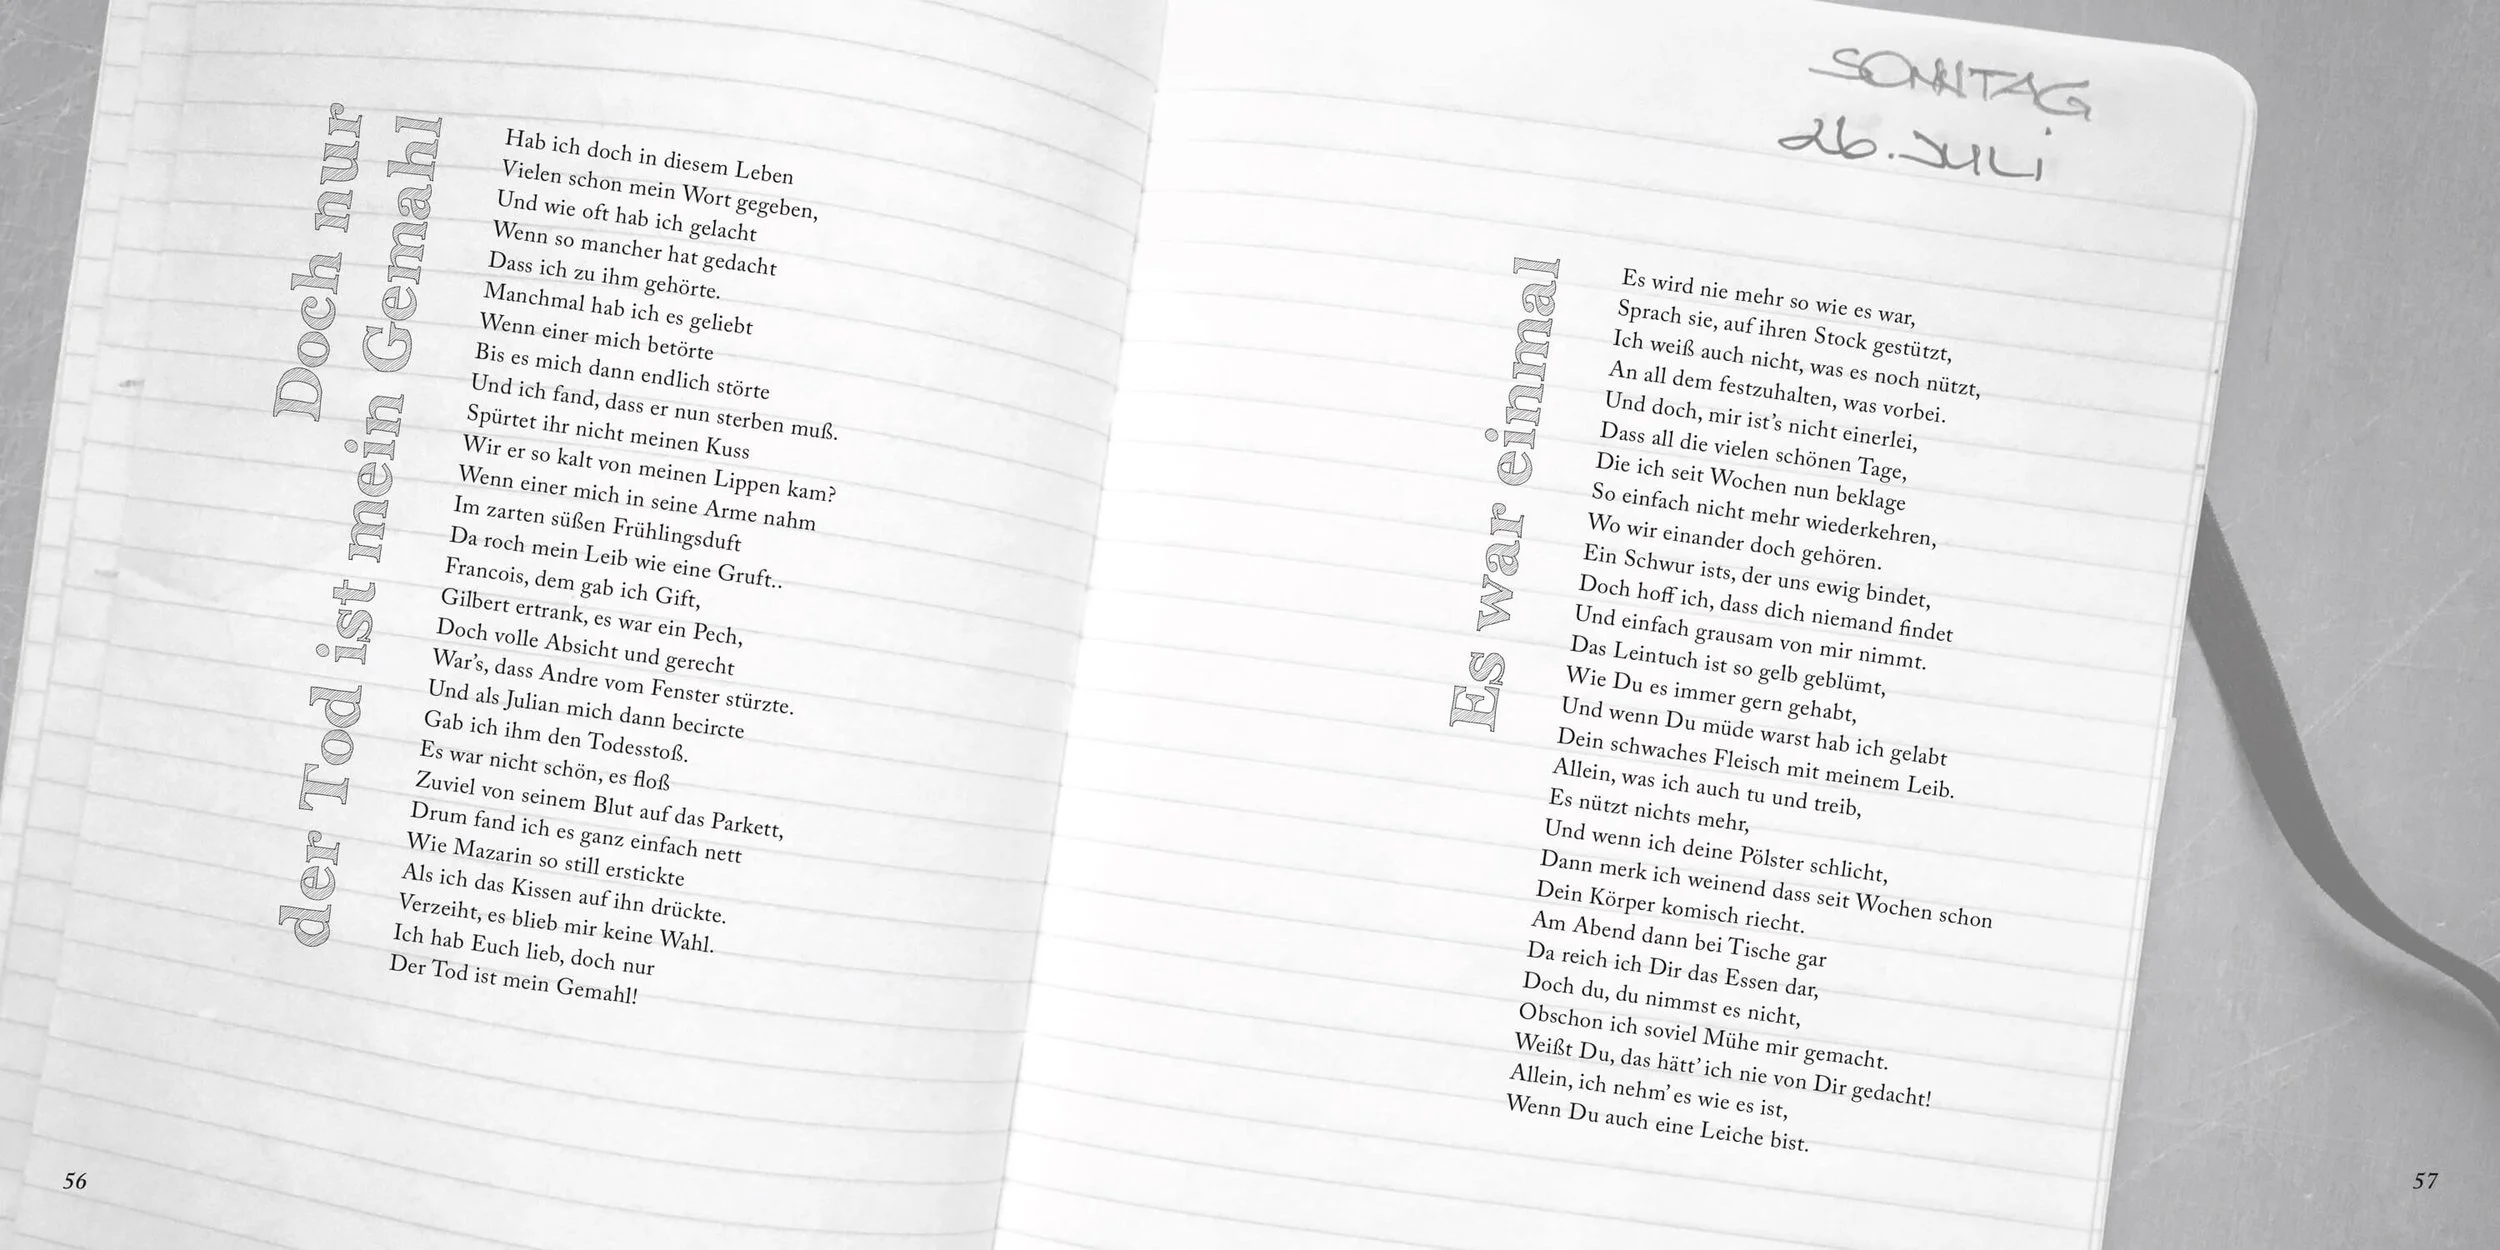 Doch nur
der Tod ist mein Gemahl
Hab ich doch in diesem Leben
Vielen schon mein Wort gegeben,
Und wie oft hab ich gelacht
Wenn so mancher hat gedacht
Dass ich zu ihm gehörte.
Manchmal hab ich es geliebt
Wenn einer mich betörte
Bis es mich dann endlich störte
Und ich fand, dass er nun sterben muß.
Spürtet ihr nicht meinen Kuss
Wir er so kalt von meinen Lippen kam?
Wenn einer mich in seine Arme nahm
Im zarten süßen Frühlingsduft
Da roch mein Leib wie eine Gruft..
Francois, dem gab ich Gift,
Gilbert ertrank, es war ein Pech,
Doch volle Absicht und gerecht
War’s, dass Andre vom Fenster stürzte.
Und als Julian mich dann becircte
Gab ich ihm den Todesstoß.
Es war nicht schön, es floß
Zuviel von seinem Blut auf das Parkett,
Drum fand ich es ganz einfach nett
Wie Mazarin so still erstickte
Als ich das Kissen auf ihn drückte.
Verzeiht, es blieb mir keine Wahl.
Ich hab Euch lieb, doch nur
Der Tod ist mein Gemahl!
56
SONNTAG
26. JULI
Es war einmal
Es wird nie mehr so wie es war,
Sprach sie, auf ihren Stock gestützt,
Ich weiß auch nicht, was es noch nützt,
An all dem festzuhalten, was vorbei.
Und doch, mir ist’s nicht einerlei,
Dass all die vielen schönen Tage,
Die ich seit Wochen nun beklage
So einfach nicht mehr wiederkehren,
Wo wir einander doch gehören.
Ein Schwur ists, der uns ewig bindet,
Doch hoff ich, dass dich niemand findet
Und einfach grausam von mir nimmt.
Das Leintuch ist so gelb geblümt,
Wie Du es immer gern gehabt,
Und wenn Du müde warst hab ich gelabt
Dein schwaches Fleisch mit meinem Leib.
Allein, was ich auch tu und treib,
Es nützt nichts mehr,
Und wenn ich deine Pölster schlicht,
Dann merk ich weinend dass seit Wochen schon
Dein Körper komisch riecht.
Am Abend dann bei Tische gar
Da reich ich Dir das Essen dar,
Doch du, du nimmst es nicht,
Obschon ich soviel Mühe mir gemacht.
Weißt Du, das hätt’ ich nie von Dir gedacht!
Allein, ich nehm’ es wie es ist,
Wenn Du auch eine Leiche bist.
57